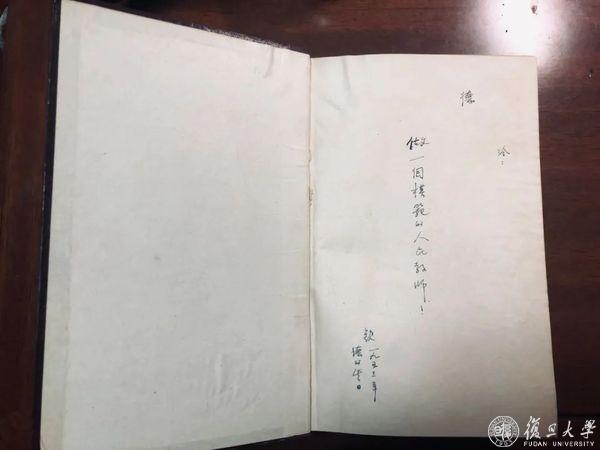 做一個模範的人民教師！
一九五三年
生日
復旦大學
FUDAN UNIVERSITY